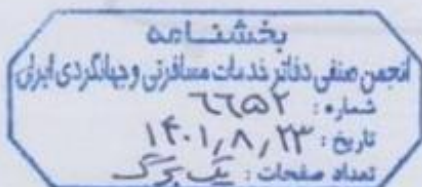 بخشنامه
انجمن صنفی دفاتر خدمات مسافرتی و جهانگردی ایران
شماره: ۶۶۵۲
تاریخ: ۱۴۰۱/۸/۲۳
تعداد صفحات: یک برگ